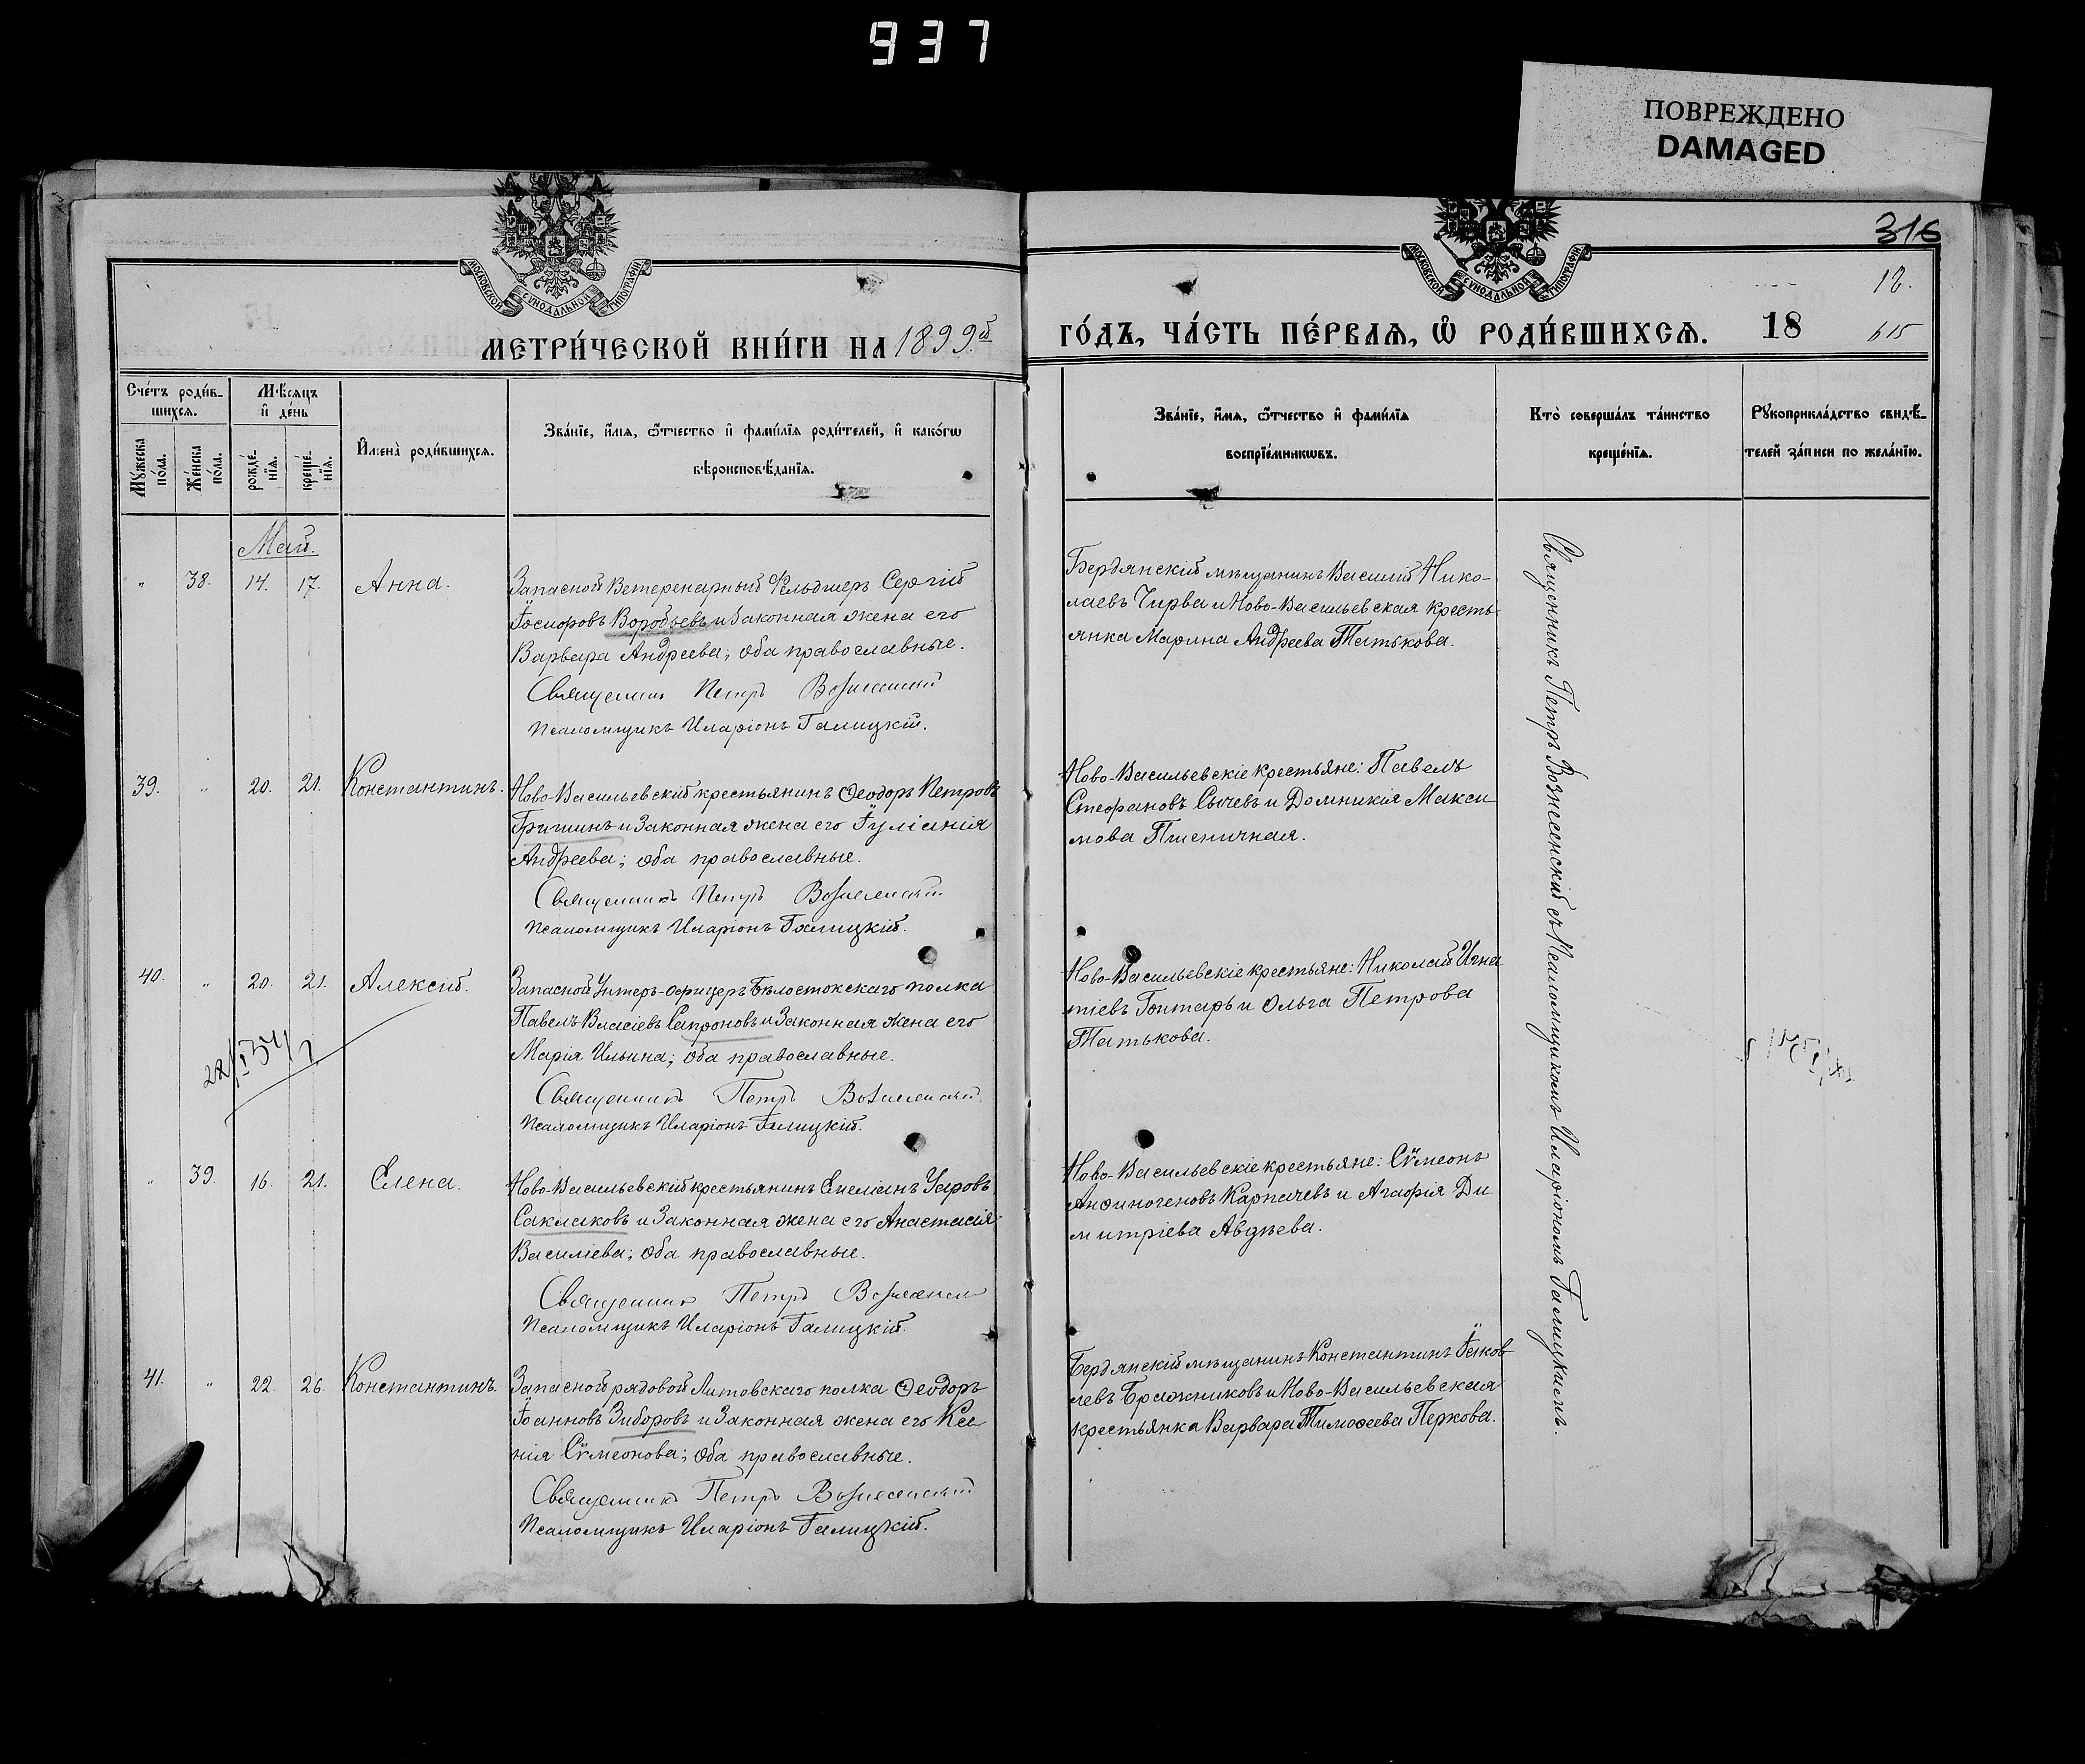 937
ПОВРЕЖДЕНО
DAMAGED
316
12.
615
МОСКОВСКОЙ СУНОДАЛЬНОЙ ТИПОГРАФІИ
МОСКОВСКОЙ СУНОДАЛЬНОЙ ТИПОГРАФІИ
МЕТРИ́ЧЕСКОЙ КНИ́ГИ НА 1899.й
ГО́ДЪ, ЧА́СТЬ ПЕ́РВАѦ, Ѽ РОДИ́ВШИХСѦ. 18
Сче́тъ роди́в-
шихсѧ.
Мꙋ́жеска по́ла.
Же́нска по́ла.
Мѣ́сѧцъ
и҆ де́нь
рожде́-нїѧ.
креще́-нїѧ.
И҆мена̀ роди́вшихсѧ.
Зва́нїе, и҆́мѧ, ѻ҆́тчество и҆ фами́лїѧ роди́телей, и҆ како́гѡ
вѣроисповѣ́данїѧ.
Зва́нїе, и҆́мѧ, ѻ҆́тчество и҆ фами́лїѧ
воспрїе́мникѡвъ.
Кто̀ соверша́лъ та́инство
креще́нїѧ.
Рꙋкоприкла́дство свидѣ́-
телей за́писи по жела́нїю.
Май.
" 38. 14. 17. Анна.
Запасной Ветеренарный Фельдшеръ Сергій
Іосифовъ Воробьевъ и законная жена его
Варвара Андреева; оба православные.
Священникъ Петръ Вознесенскій
Псаломщикъ Иларіонъ Галицкій.
Бердянскій мѣщанинъ Василій Нико-
лаевъ Чирва и Ново-Васильевская кресть-
янка Марина Андреева Татькова.
39. " 20. 21. Константинъ.
Ново-Васильевскій крестьянинъ Ѳеодоръ Петровъ
Гришинъ и законная жена его Іуліанія
Андреева; оба православные.
Священникъ Петръ Вознесенскій
Псаломщикъ Иларіонъ Галицкій.
Ново-Васильевскіе крестьяне: Павелъ
Стефановъ Сычевъ и Домникія Макси
мова Пшеничная.
40. " 20. 21. Алексій.
Запасной Унтеръ-офицеръ Бѣлостокскаго полка
Павелъ Власіевъ Сапроновъ и законная жена его
Марія Ильина; оба православные.
Священникъ Петръ Вознесенскій
Псаломщикъ Иларіонъ Галицкій.
Ново-Васильевскіе крестьяне: Николай Игна
тіевъ Гонтарь и Ольга Петрова
Татькова.
" 39. 16. 21. Елена.
Ново-Васильевскій крестьянинъ Емеліанъ Уаровъ
Саклаковъ и законная жена его Анастасія
Василіева; оба православные.
Священникъ Петръ Вознесенскій
Псаломщикъ Иларіонъ Галицкій.
Ново-Васильевскіе крестьяне: Сѵмеонъ
Анѳиногеновъ Карпачевъ и Агафія Ди
митріева Авдѣева.
41. " 22. 26. Константинъ.
Запасной рядовой Литовскаго полка Ѳеодоръ
Іоанновъ Зиборовъ и законная жена его Ксе
нія Сѵмеонова; оба православные.
Священникъ Петръ Вознесенскій
Псаломщикъ Иларіонъ Галицкій.
Бердянскій мѣщанинъ Константинъ Іаков
левъ Бражниковъ и Ново-Васильевская
крестьянка Варвара Тимоѳеева Перкова.
Священникъ Петръ Вознесенскій съ Псаломщикомъ Иларіономъ Галицкимъ.